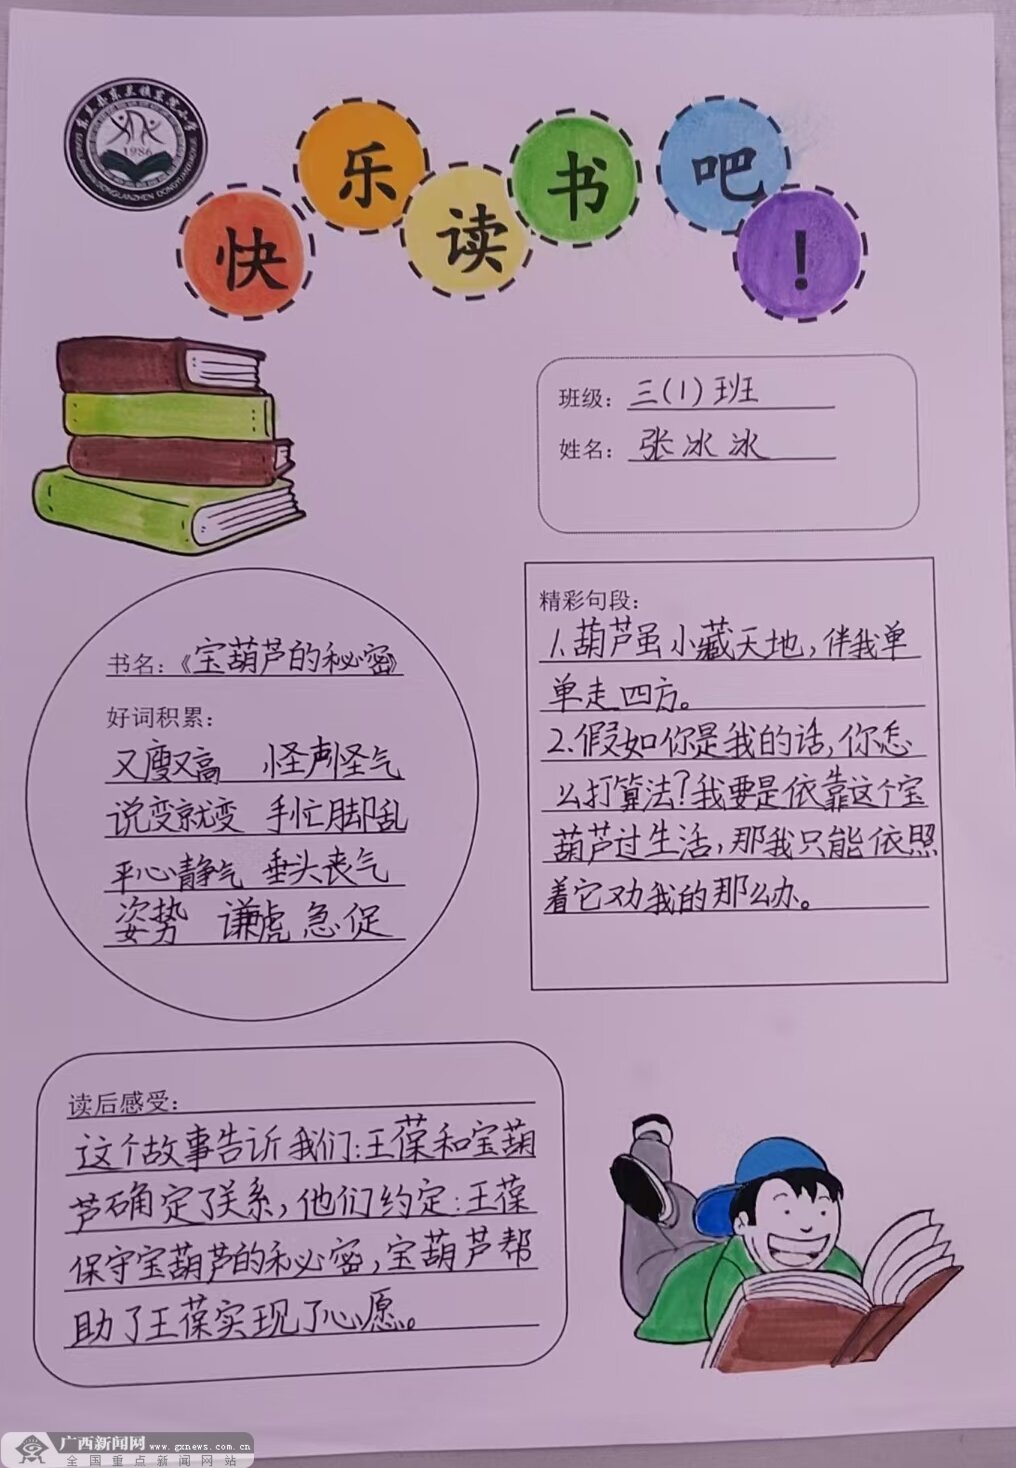 东兰县东兰镇东院小学
1986
DONGLANXIAN DONGLANZHEN DONGYUANXIAOXUE
快乐读书吧!
班级：三(1)班
姓名：张冰冰
书名：《宝葫芦的秘密》
好词积累：
又瘦又高 怪声怪气
说变就变 手忙脚乱
平心静气 垂头丧气
姿势 谦虚 急促
精彩句段：
1.葫芦虽小藏天地，伴我单
单走四方。
2.假如你是我的话，你怎
么打算法？我要是依靠这个宝
葫芦过生活，那我只能依照
着它劝我的那么办。
读后感受：
这个故事告诉我们：王葆和宝葫
芦确定了关系，他们约定：王葆
保守宝葫芦的秘密，宝葫芦帮
助了王葆实现了心愿。
广西新闻网 www.gxnews.com.cn
全国重点新闻网站